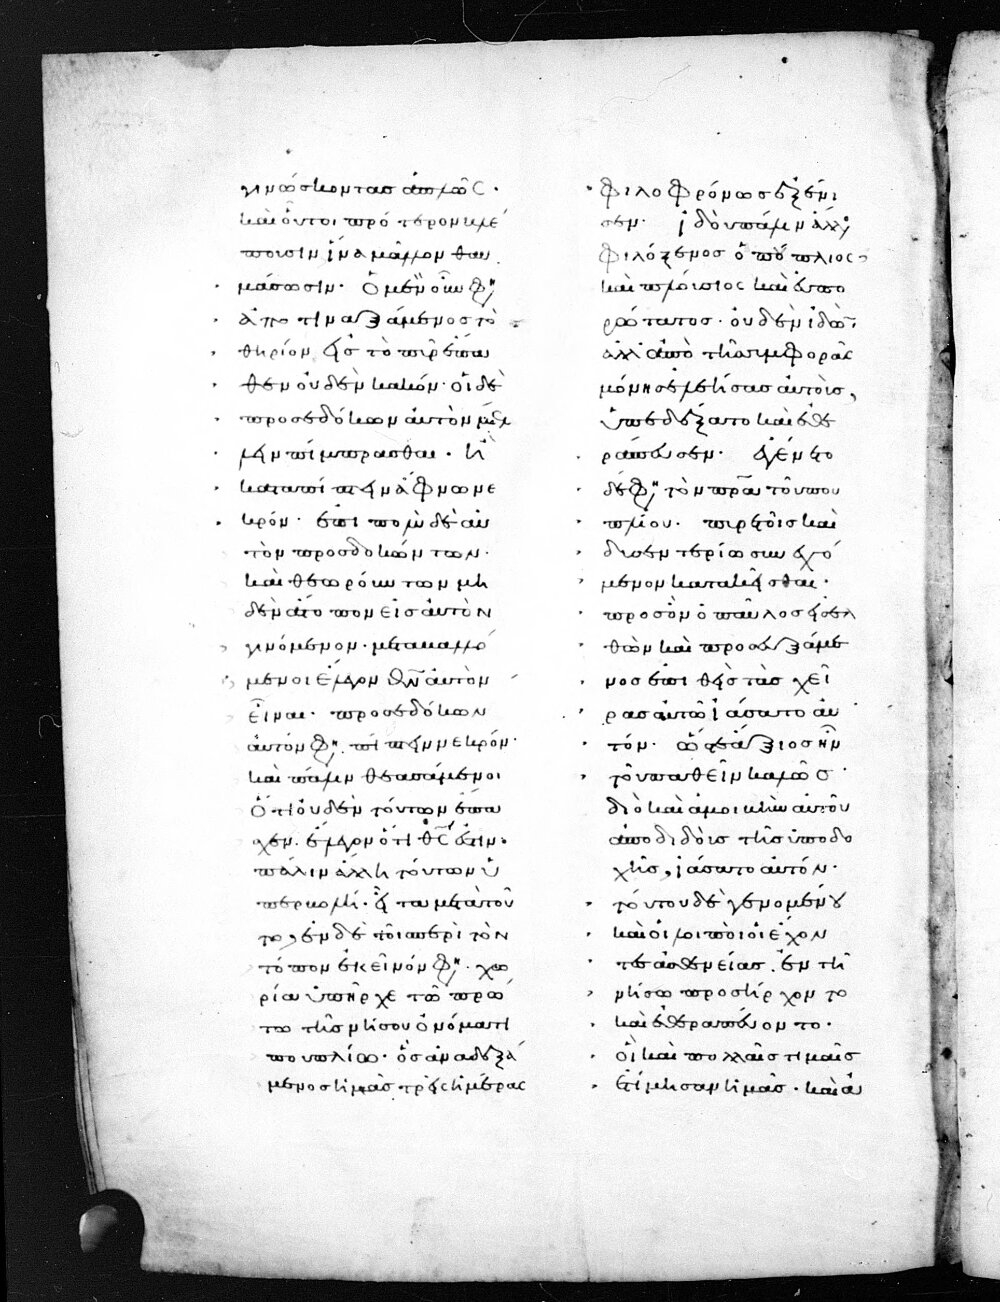 γινώσκοντας ἁπλῶς·
καὶ οὗτοι πρότερον βλέ
πουσιν ἵνα μᾶλλον θαυ
μάσωσιν· Ὁ μὲν οὖν φη
ἀποτιναξάμενος τὸ
θηρίον εἰς τὸ πῦρ ἔπα
θεν οὐδὲν κακόν· οἱ δὲ
προσεδόκων αὐτὸν μέλ
λειν πίμπρασθαι· ἢ
καταπίπτειν ἄφνω νε
κρόν· ἐπὶ πολὺ δὲ αὐ
τῶν προσδοκώντων·
καὶ θεωρούντων μη
δὲν ἄτοπον εἰς αὐτὸν
γινόμενον· μεταβαλλό
μενοι ἔλεγον θν αὐτὸν
εἶναι· προσεδόκων
αὐτόν φη, πίπτειν νεκρόν·
καὶ πάλιν θεασάμενοι
ὅτι οὐδὲν τούτων ἔπα
χεν· ἔλεγον ὅτι θς ἐστιν·
πάλιν ἄλλη τούτων ὑ
περβολή· εἶτα μετὰ τοῦ
το, ἐν δὲ τοῖς περὶ τὸν
τόπον ἐκεῖνόν φη· χω
ρία ὑπῆρχε τῶ πρώ
τω τῆς νήσου ὀνόματι
πουπλίω· ὃς ἀναδεξά
μενος ἡμᾶς τρεῖς ἡμέρας
φιλοφρόνως ἐξένι
σεν· ἰδοὺ πάλιν ἄλλος
φιλόξενος ὁ πούπλιος
καὶ πλούσιος καὶ εὐπο
ρώτατος· οὐδὲν ἰδών
ἀλλ' ἀπὸ τῆς συμφορᾶς
μόνης ἐλεήσας αὐτούς,
ὑπεδέξατο καὶ ἐθε
ράπευσεν· ἐγένετο
δέ φη, τὸν πρα τοῦ που
πλίου· πυρετοῖς καὶ
δυσεντερίω συνεχό
μενον κατακεῖσθαι·
πρὸς ὃν ὁ παῦλος εἰσελ
θὼν καὶ προσευξάμε
νος ἐπιθεὶς τὰς χεῖ
ρας αὐτῶ ἰάσατο αὐ
τόν· ὥστε ἄξιος ἦν
τοῦ παθεῖν καλῶς·
διὸ καὶ ἀμοιβὴν αὐτοῦ
ἀποδιδοὺς τῆς ὑποδο
χῆς, ἰάσατο αὐτόν·
τούτου δὲ γενομένου
καὶ οἱ λοιποὶ οἱ ἔχον
τες ἀσθενείας, ἐν τῆ
νήσω προσήρχοντο
καὶ ἐθεραπεύοντο·
οἳ καὶ πολλαῖς τιμαῖς
ἐτίμησαν ἡμᾶς· καὶ ἀ